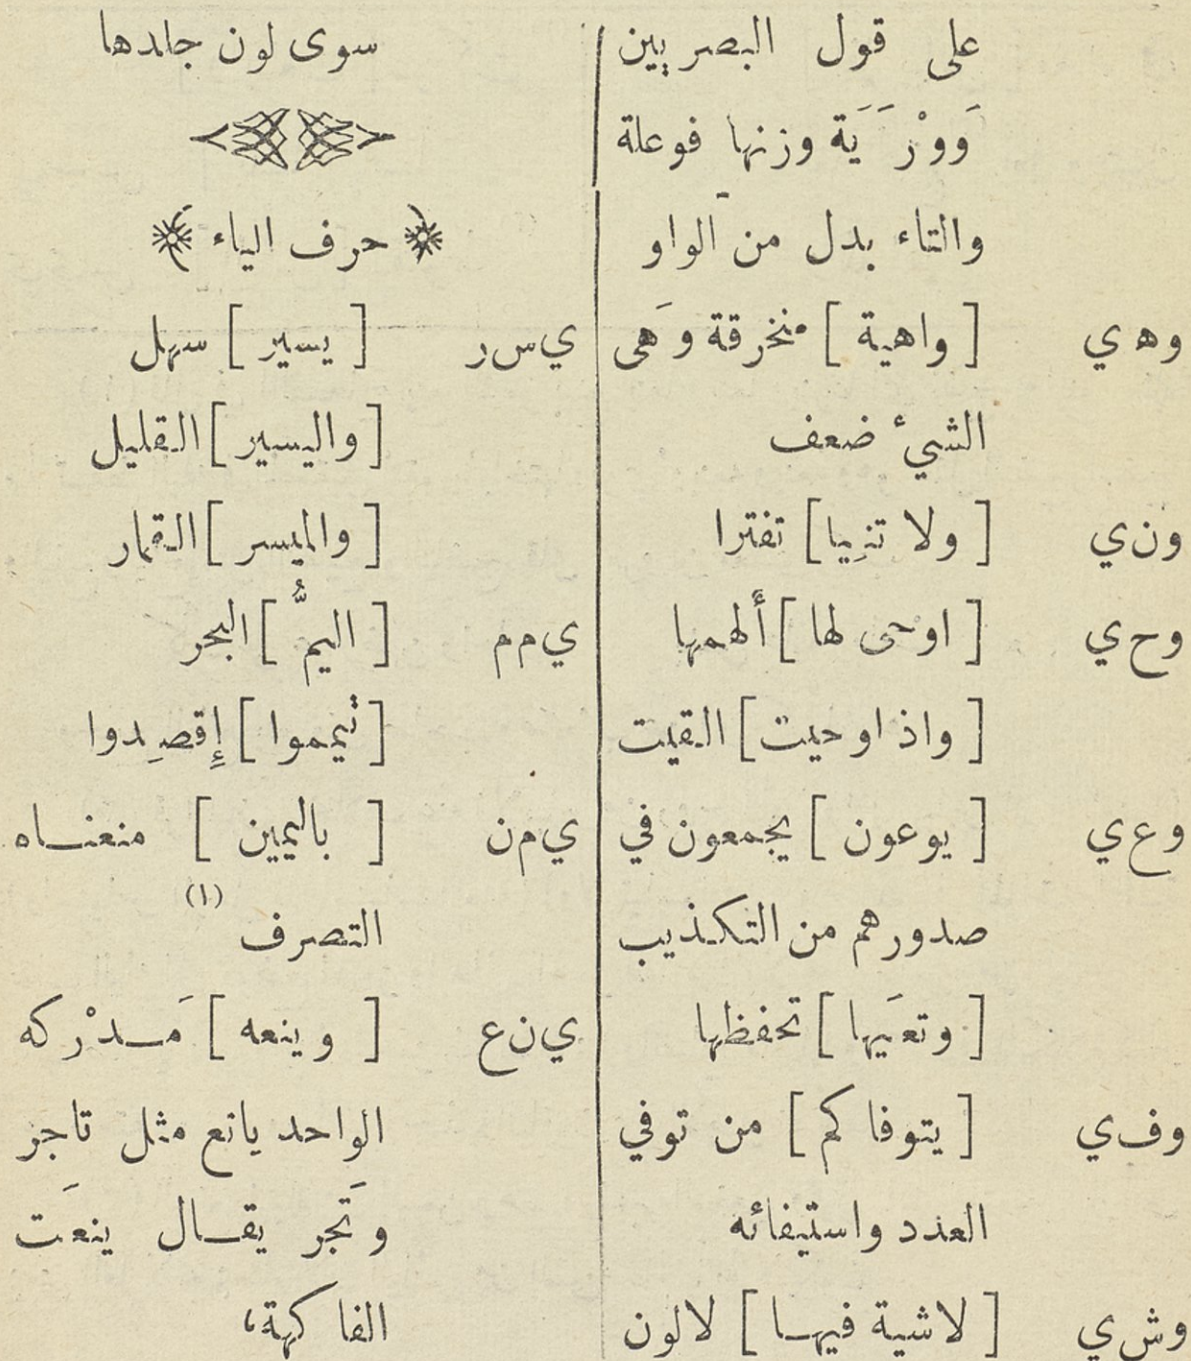 على قول البصريين
وَوْرَيَة وزنها فوعلة
والتاء بدل من الواو
وه ي [ واهية ] منخرقة وَهى
الشيءُ ضعف
ون ي [ ولا تنِيا ] تفترا
وح ي [ اوحى لها ] أَلهمها
[ واذ اوحيت ] القيت
وع ي [ يوعون ] يجمعون في
صدورهم من التكذيب
[ وتعَيها ] تحفظها
وف ي [ يتوفاكم ] من توفي
العدد واستيفائه
وش ي [ لاشية فيهـا ] لالون
سوى لون جلدها
﴿ حرف الياء ﴾
ي س ر [ يسير ] سهل
[ واليسير ] القليل
[ والميسر ] القمار
ي م م [ اليمُّ ] البحر
[ تيمموا ] إِقصِدوا
ي م ن [ باليمين ] منعنـاه
التصرف (١)
ي ن ع [ وينعه ] مَـدْركه
الواحد يانع مثل تاجر
وتَجر يقـال ينعَت
الفاكهة،